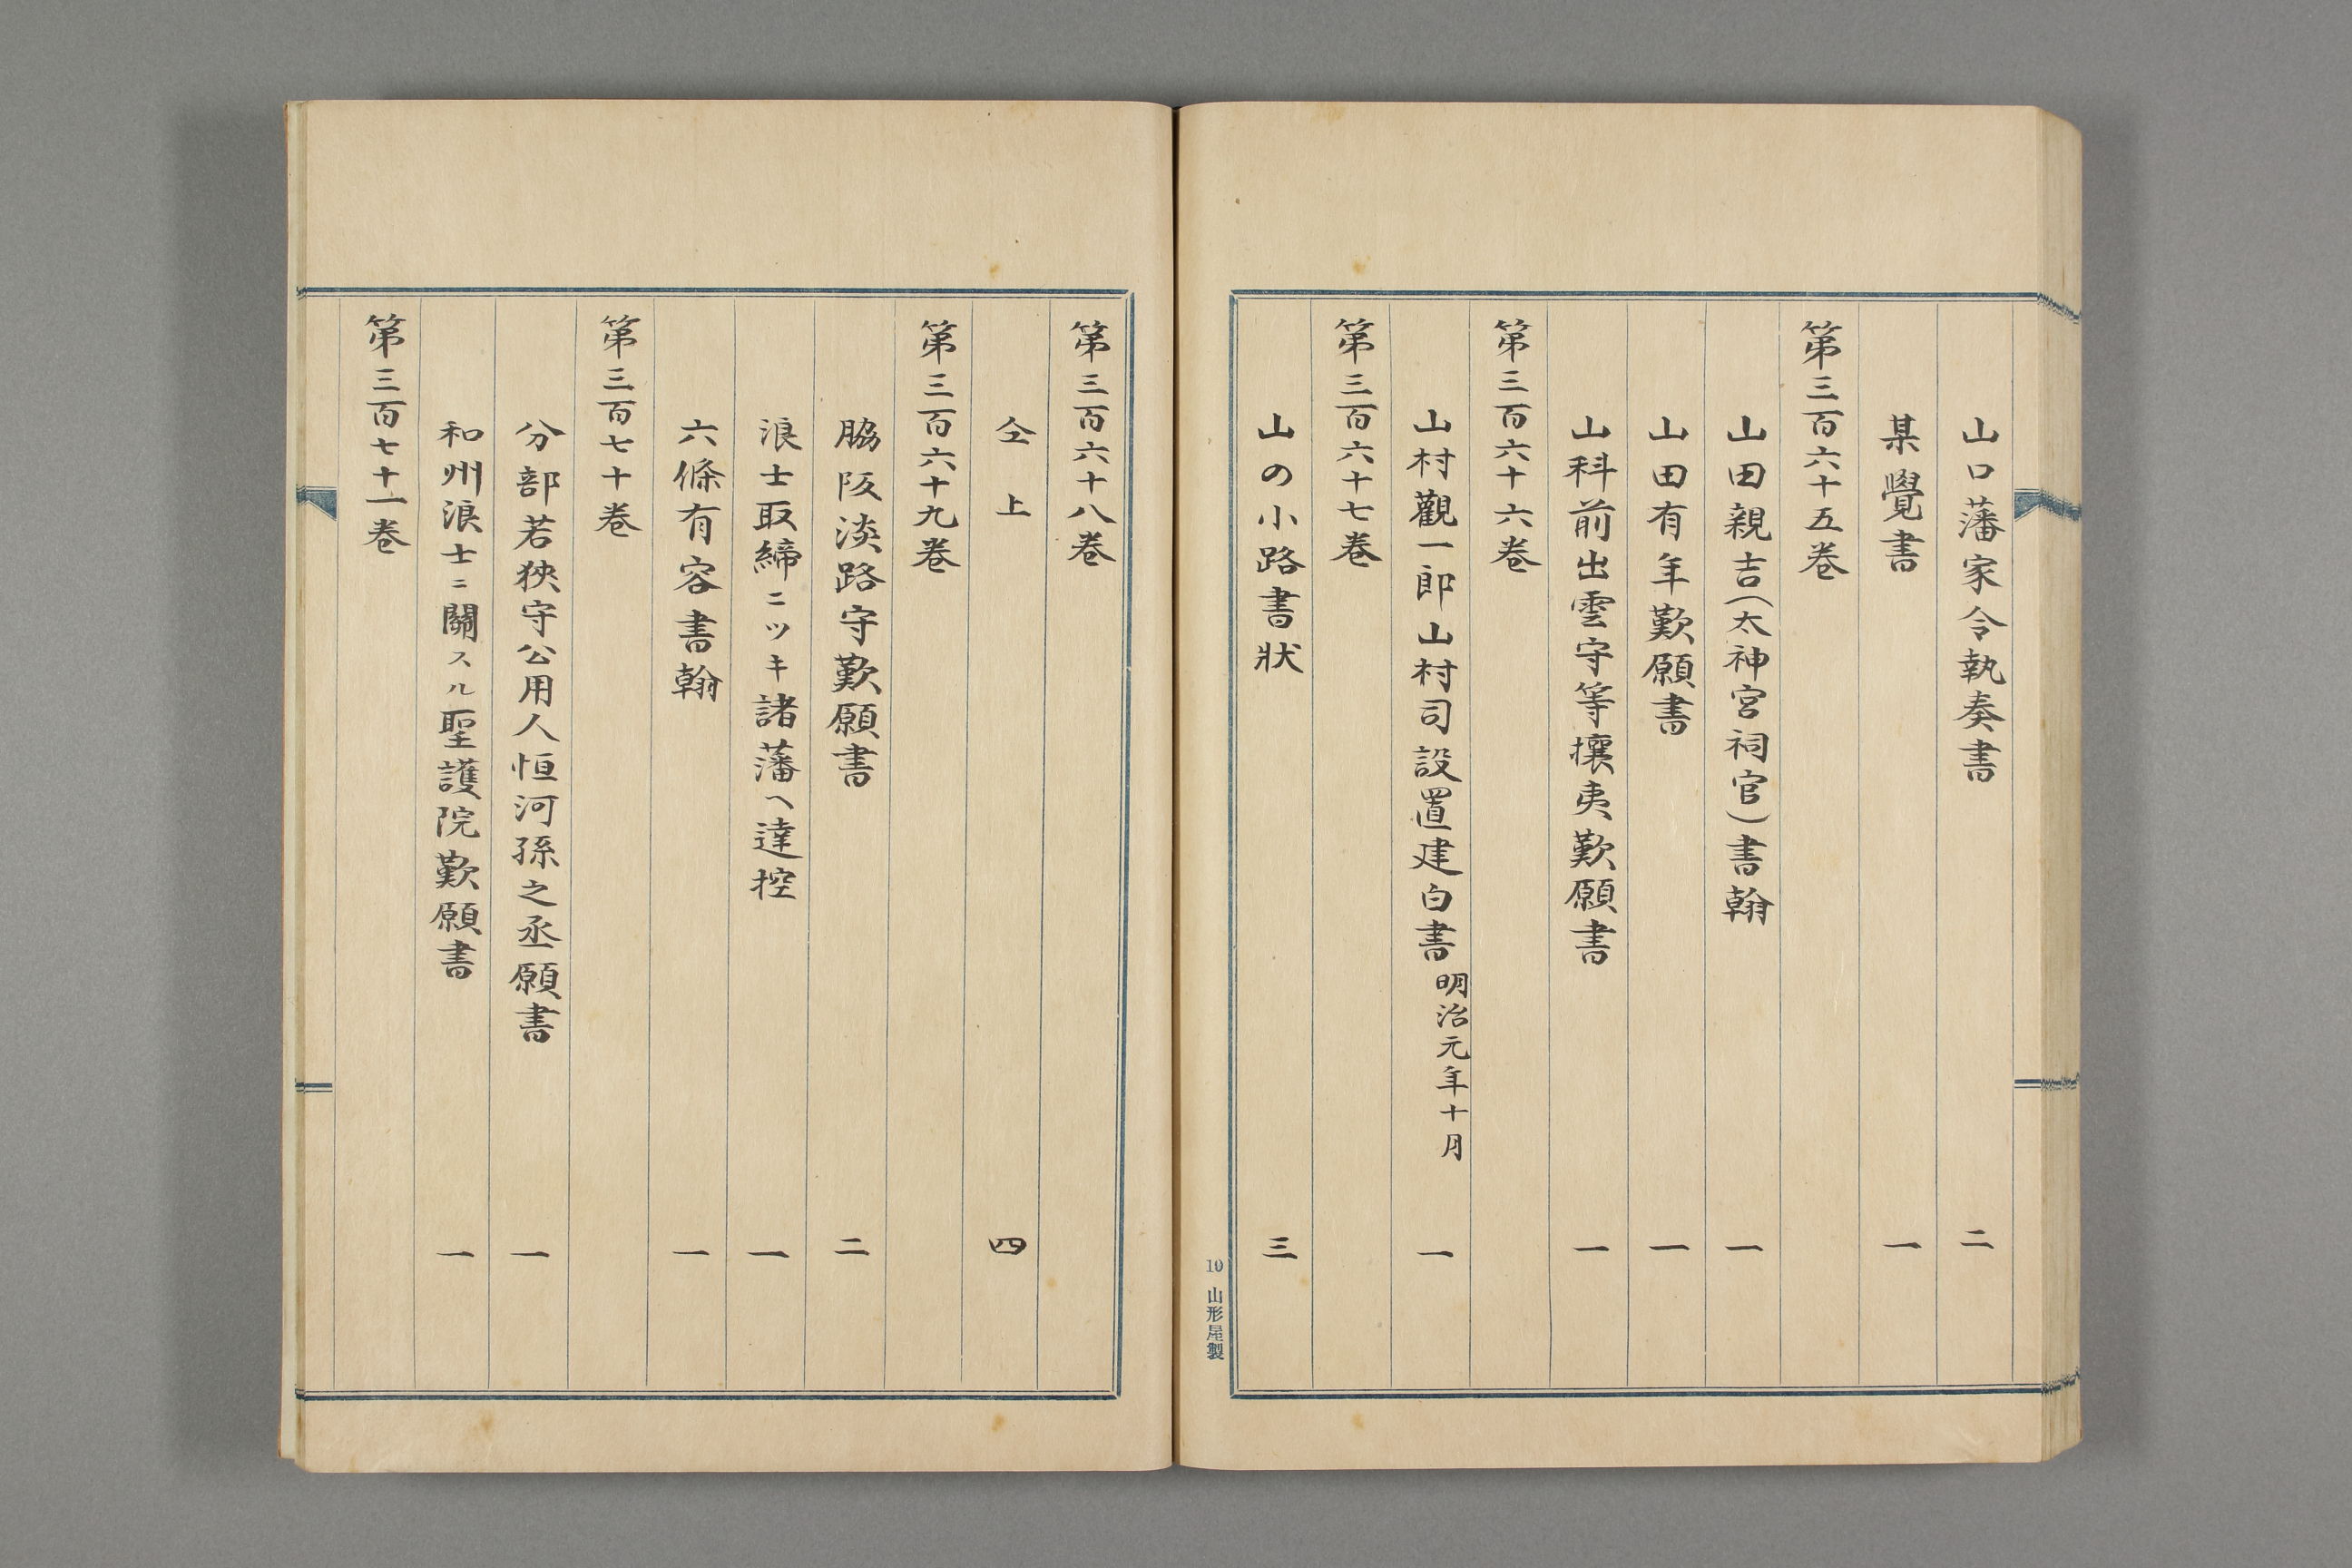 山口藩家令執奏書 二
某覺書 一
第三百六十五巻
山田親吉(太神宮祠官)書翰 一
山田有年歎願書 一
山科前出雲守等攘夷歎願書 一
第三百六十六巻
山村觀一郎山村司設置建白書 明治元年十月 一
第三百六十七巻
山の小路書状 三
10 山形屋製
第三百六十八巻
仝上 四
第三百六十九巻
脇阪淡路守歎願書 二
浪士取締ニツキ諸藩ヘ達控 一
六條有容書翰 一
第三百七十巻
分部若狹守公用人恒河孫之丞願書 一
和州浪士ニ關スル聖護院歎願書 一
第三百七十一巻